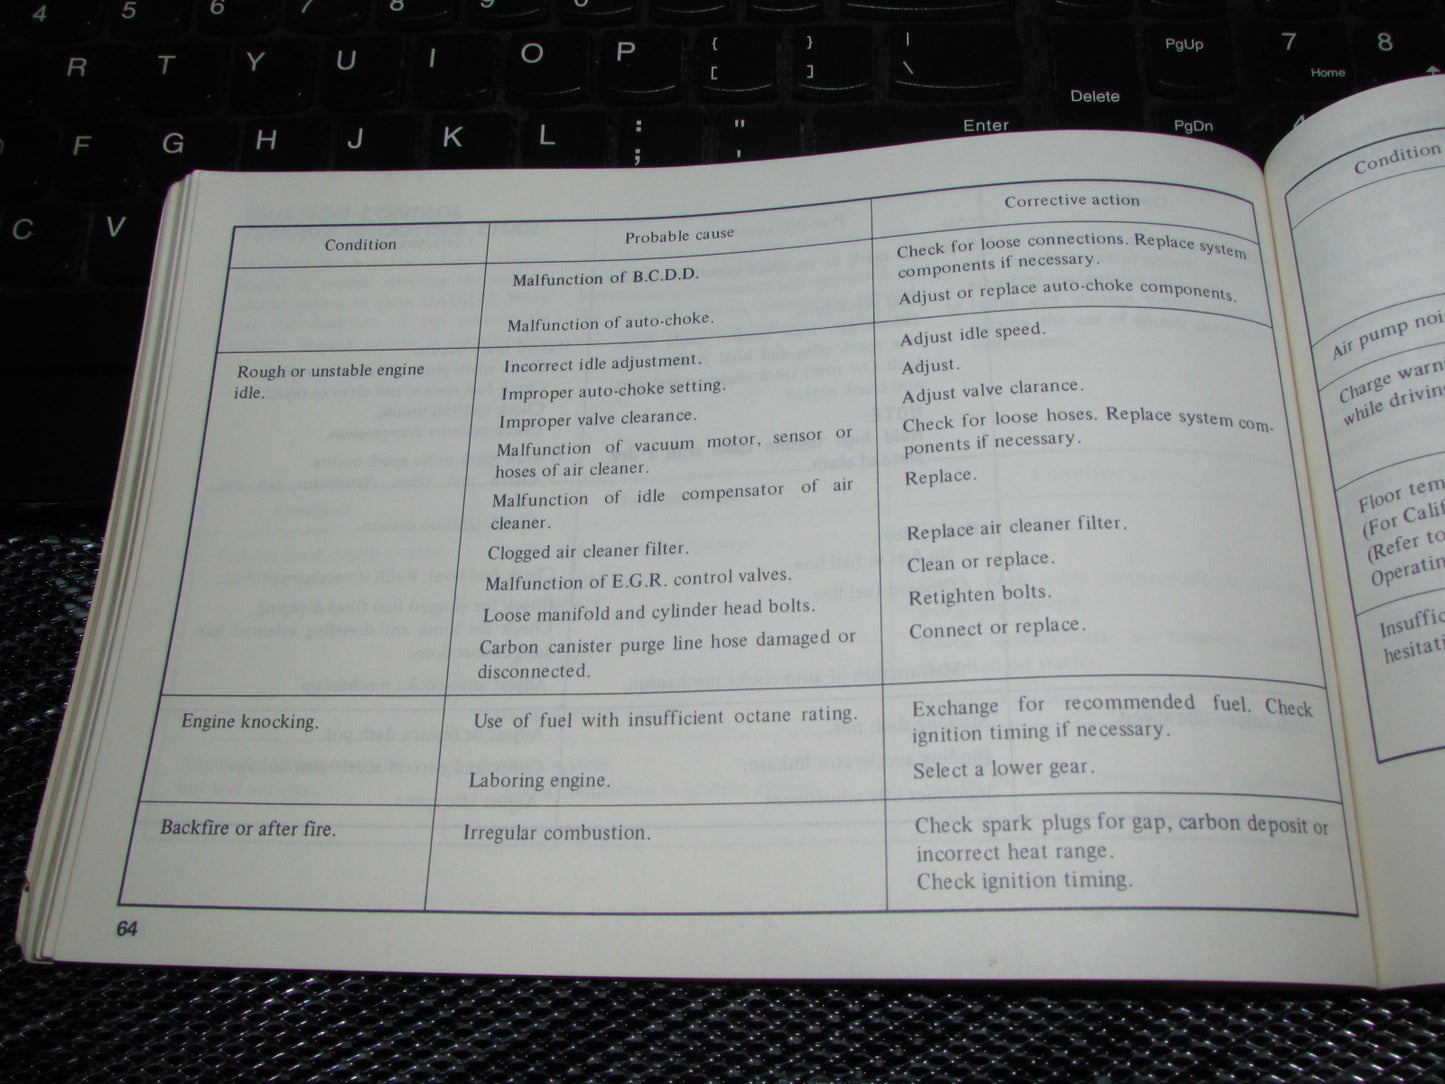 4 5 6 7 8 9 0
R T Y U I O P { [ } ] | \ PgUp 7 Home 8
Delete
F G H J K L : ; " ' Enter PgDn 4
C V
Condition
Probable cause
Corrective action
Malfunction of B.C.D.D.
Check for loose connections. Replace system
components if necessary.
Malfunction of auto-choke.
Adjust or replace auto-choke components.
Rough or unstable engine
idle.
Incorrect idle adjustment.
Adjust idle speed.
Improper auto-choke setting.
Adjust.
Improper valve clearance.
Adjust valve clarance.
Malfunction of vacuum motor, sensor or
hoses of air cleaner.
Check for loose hoses. Replace system com-
ponents if necessary.
Malfunction of idle compensator of air
cleaner.
Replace.
Clogged air cleaner filter.
Replace air cleaner filter.
Malfunction of E.G.R. control valves.
Clean or replace.
Loose manifold and cylinder head bolts.
Retighten bolts.
Carbon canister purge line hose damaged or
disconnected.
Connect or replace.
Engine knocking.
Use of fuel with insufficient octane rating.
Exchange for recommended fuel. Check
ignition timing if necessary.
Laboring engine.
Select a lower gear.
Backfire or after fire.
Irregular combustion.
Check spark plugs for gap, carbon deposit or
incorrect heat range.
Check ignition timing.
64
Condition
Air pump noi
Charge warn
while drivin
Floor tem
(For Calif
(Refer to
Operatin
Insuffic
hesitati